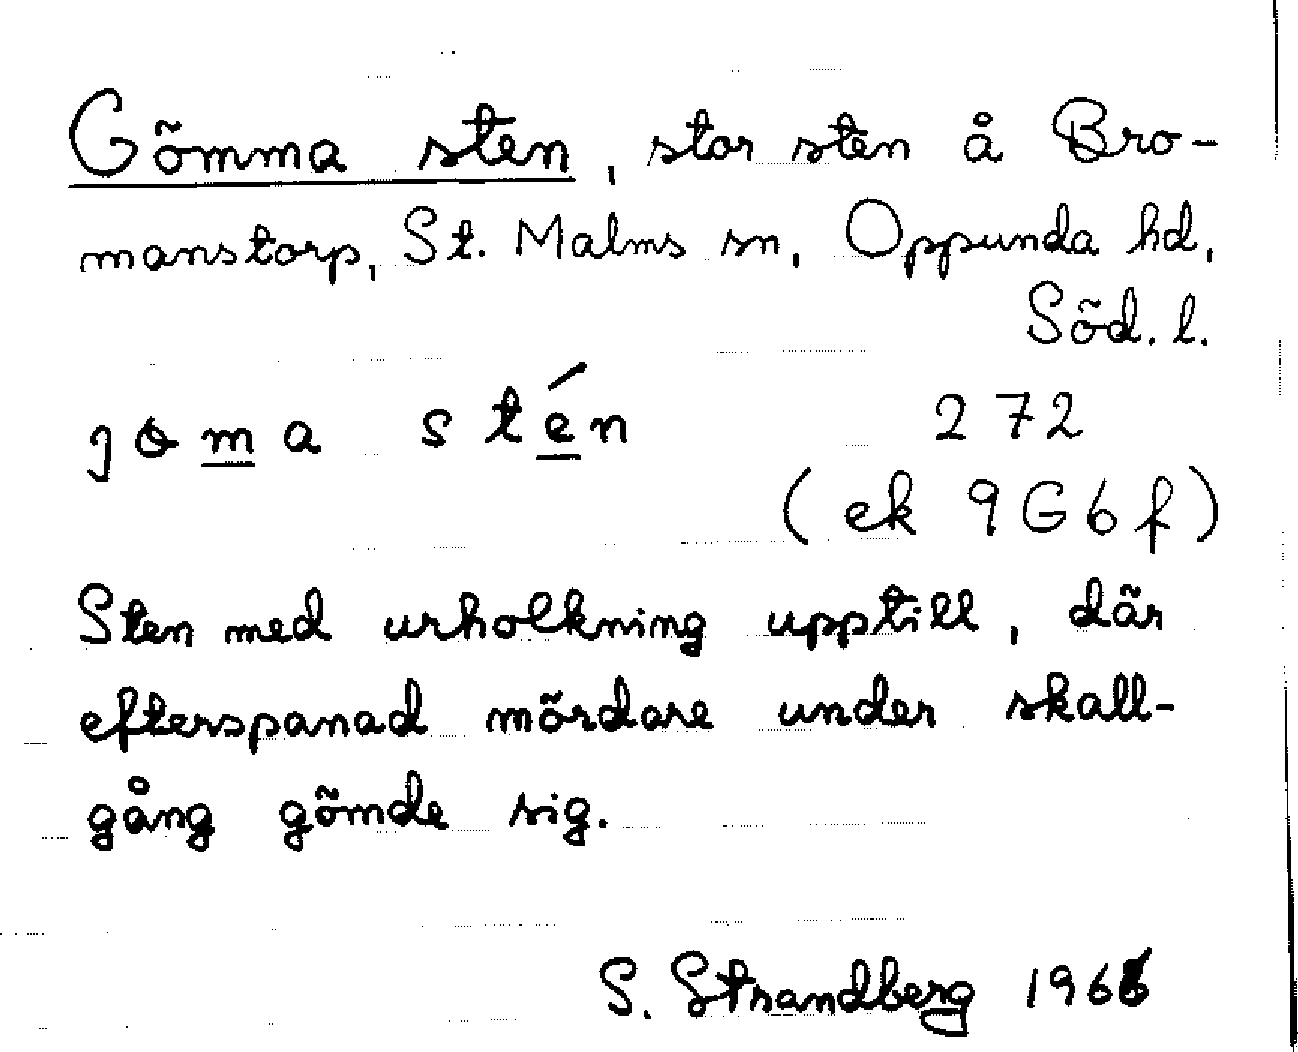 Gömma sten, stor sten å Bro-
manstorp, St. Malms sn, Oppunda hd,
Söd. l.
sten 272
(ek 9G6f)
Sten med urholkning upptill, där
efterspanad mördare under skall-
gång gömde sig.
S. Strandberg